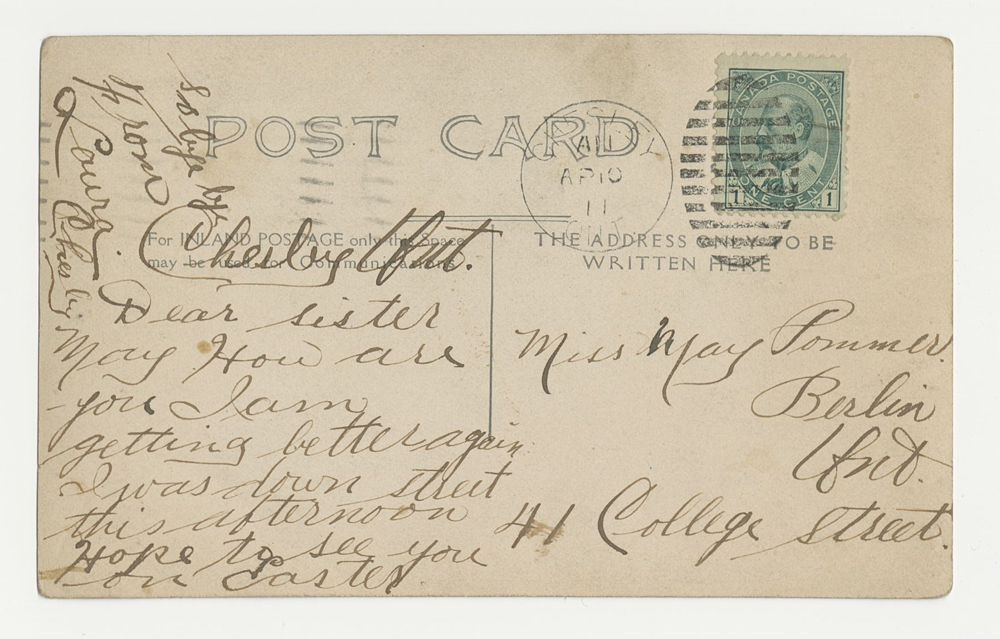 POST CARD
CANADA POSTAGE
ONE CENT
1 1
AP 10
11
For INLAND POSTAGE only this Space
may be used for Communications.
THE ADDRESS ONLY TO BE
WRITTEN HERE
Chesley Ont.
Dear sister
May How are
you I am
getting better again
I was down street
this afternoon
Hope to see you
on Easter
so bye bye
From
Laura
Chesley
Miss May Pommer.
Berlin
Ont.
41 College street.